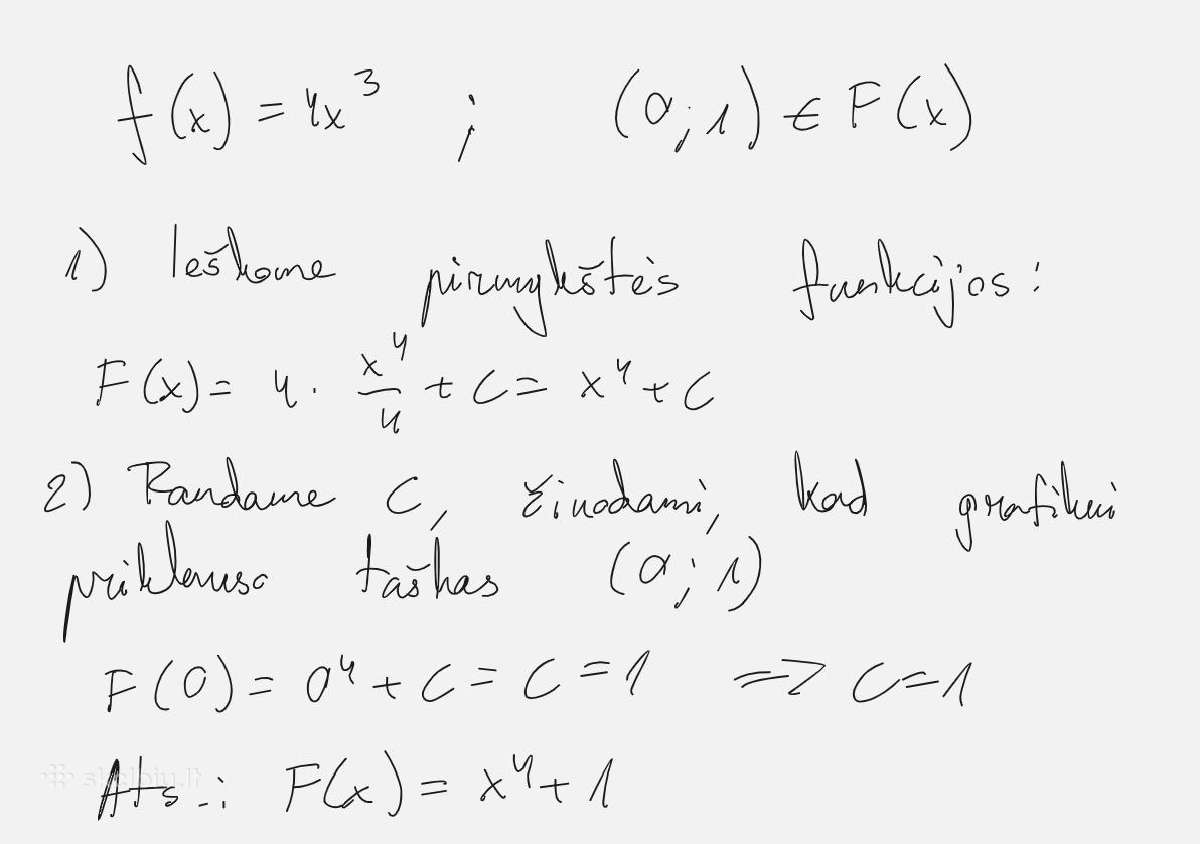 f(x) = 4x³ ; (0;1) ∈ F(x)
1) Ieškome pirmykštės funkcijos:
F(x) = 4 · x⁴/4 + C = x⁴ + C
2) Randame C, žinodami, kad grafikui
priklauso taškas (0;1)
F(0) = 0⁴ + C = C = 1 => C=1
Ats.: F(x) = x⁴ + 1
skelbiu.lt